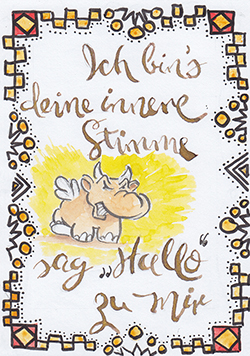 Ich bin's
deine innere
Stimme
sag „Hallo“
zu mir